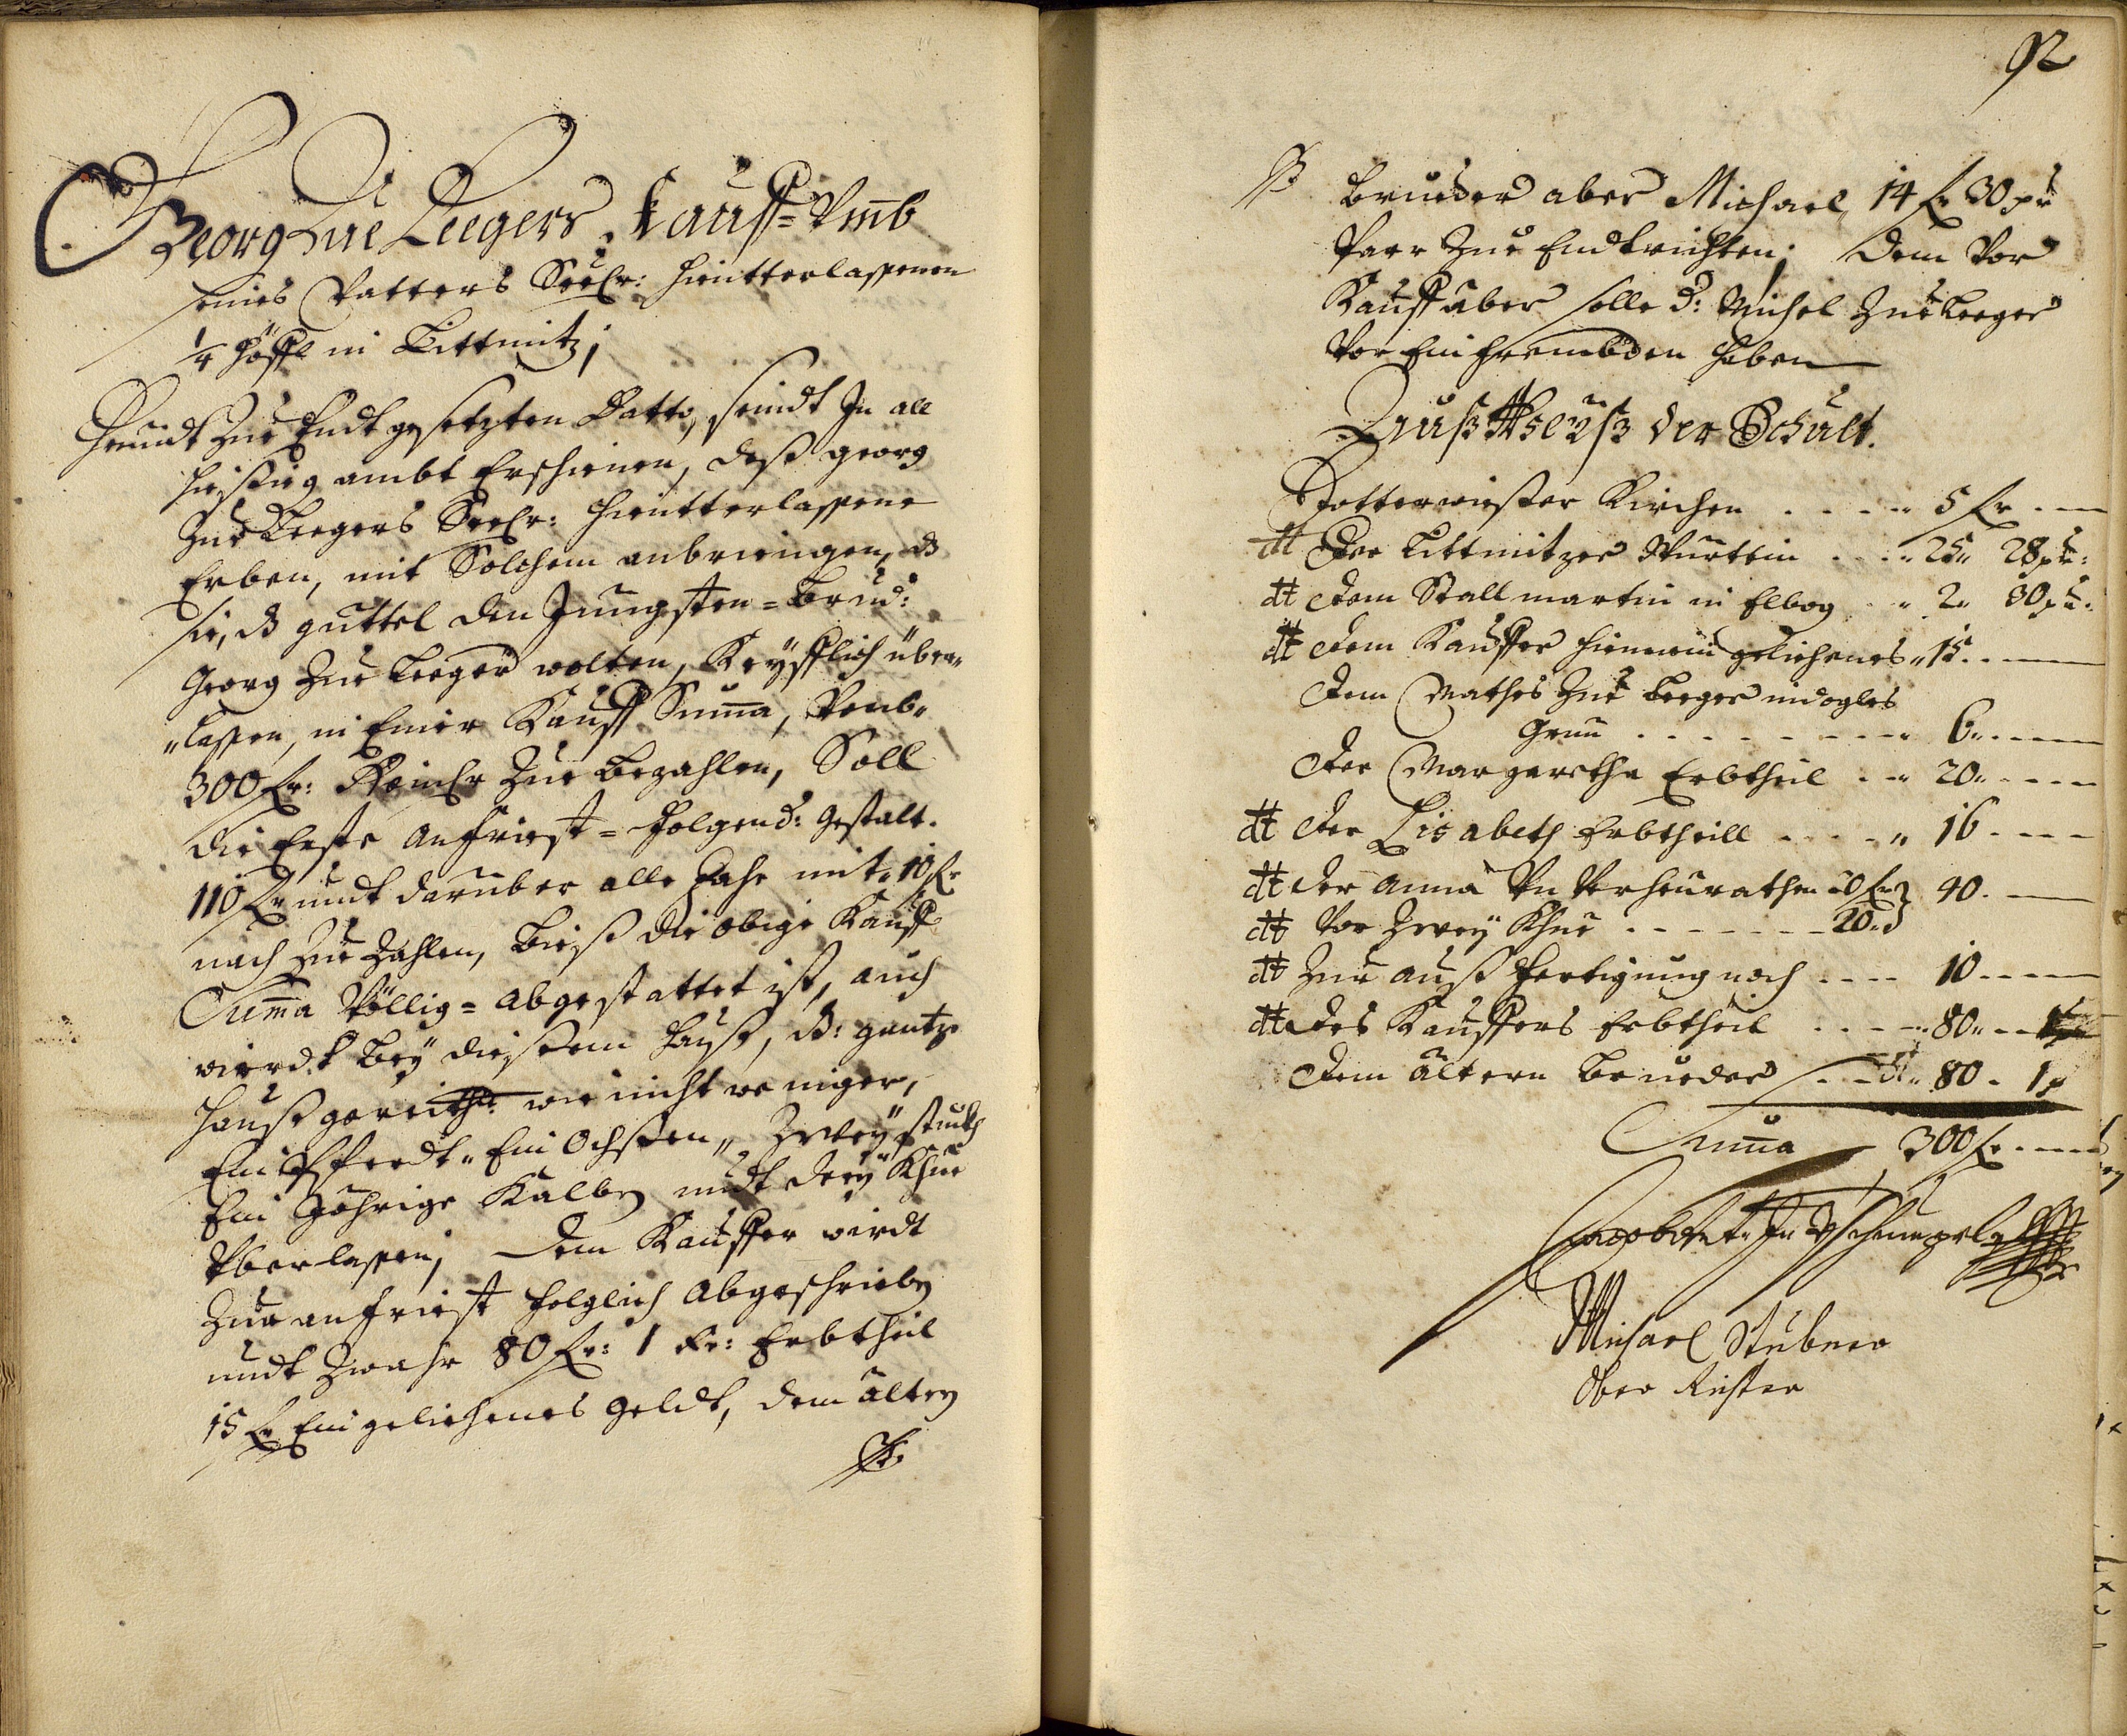 Georg Zue Leegers Kauff= Vmb
seines Vatters Seelr: hientterlassenen
1/4 höffl in Littmitz;
Heundt Zue Endt gesetzten Datto, seindt In all
hießig ambt Erschienen, deß georg
Zue Leegers Seelr: hientterlassene
Erben, mit Solchem anbringen, dß
sie, dß guttel den Jungsten= Brud:
Georg Zue Leeger wolten, Keyfflich über„
„lassen, in Einer Kauff Suma, Benb„
300 fr: Reinlr Zue bezahlen, Soll
die Erste anfriest= folgend: gestalt.
110 fr undt darüber alle Jahr mit 10 fr
nach Zue Zahlen, bieß die obige Kauff
Suma Völlig= abgestattet ist, auch
wierdt bey dießem Hauß, dß: gantze
haußgereith: wie nicht weniger,
Ein Pferdt„ Ein Ochßen„ Zwey stuckh
Ein Jährige Kalben undt drey Khüe
Vberlassen; Dem Kauffer wirdt
Zur anfriest folglich abgeschrieben
undt Zwahr 80 fr: 1 kr: Erbtheil
15 fr Ein geliehenes geldt, dem ältern
92
Brueder aber Michael, 14 fr 30 xr
Paar Zue Endtrichten; Dem Vor
Kauff aber solle d: Michel Zue Leeger
Vor Ein frembden haben
Der Schult.
Kirchen 5 fr
dt Der Littmitzer Württin 25„ 28 xr:
dt Dem Stallmartin in Elbog 2„ 30 xr:
dt Dem Kauffer hienein geliehenes„ 15
Dem Mathes Zue Leeger in
Grün 6„
Der Margaretha Erbtheil 20„
dt Der Lisabeth Erbtheill 16
dt der Anna Vn Verheurathen 20 fr 40.
dt Vor Zwey Khüe 20„
dt Zur auß fertigung noch 10
dt Des Kauffers Erbtheil 80„
Dem ältern Brueder dt„ 80 1x
Suma 300 fr
Michael Stübner
Ober Richter